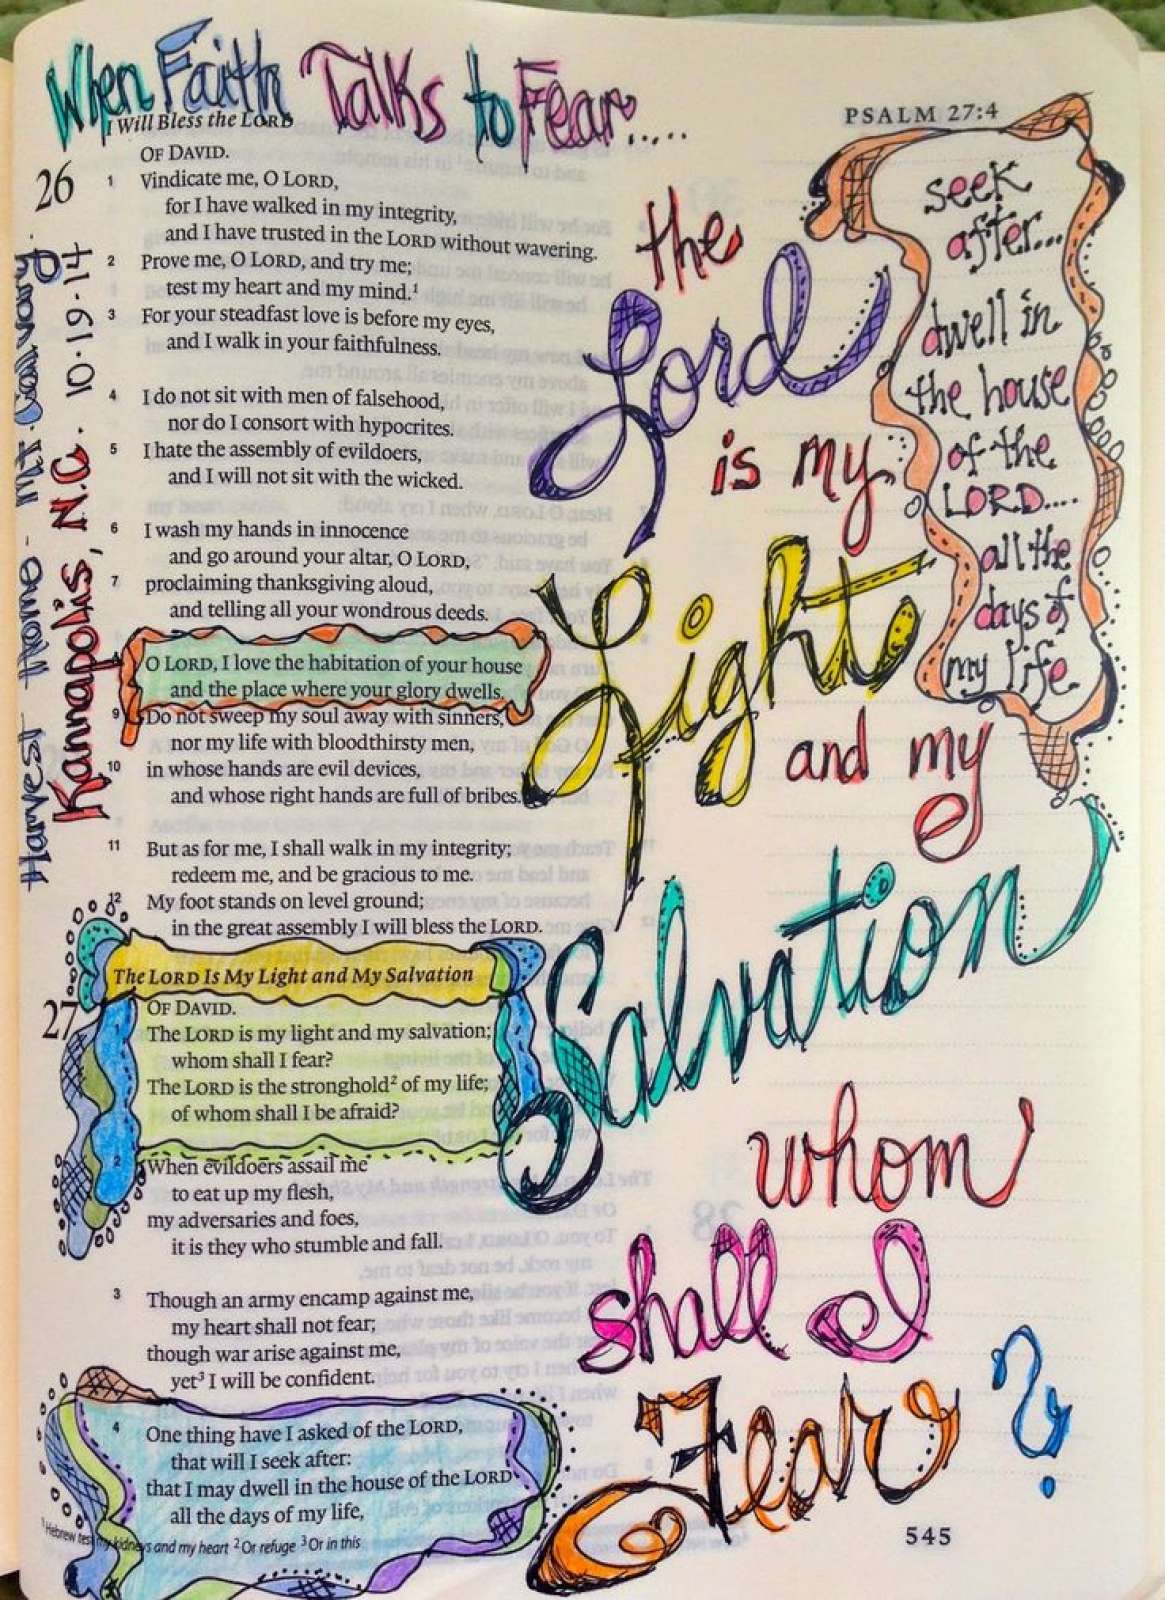 When Faith Talks to Fear.....
I Will Bless the LORD
PSALM 27:4
26
OF DAVID.
1 Vindicate me, O LORD,
for I have walked in my integrity,
and I have trusted in the LORD without wavering.
2 Prove me, O LORD, and try me;
test my heart and my mind.1
3 For your steadfast love is before my eyes,
and I walk in your faithfulness.
4 I do not sit with men of falsehood,
nor do I consort with hypocrites.
5 I hate the assembly of evildoers,
and I will not sit with the wicked.
6 I wash my hands in innocence
and go around your altar, O LORD,
7 proclaiming thanksgiving aloud,
and telling all your wondrous deeds.
O LORD, I love the habitation of your house
and the place where your glory dwells.
9 Do not sweep my soul away with sinners,
nor my life with bloodthirsty men,
10 in whose hands are evil devices,
and whose right hands are full of bribes.
11 But as for me, I shall walk in my integrity;
redeem me, and be gracious to me.
12 My foot stands on level ground;
in the great assembly I will bless the LORD.
The LORD Is My Light and My Salvation
27
OF DAVID.
1 The LORD is my light and my salvation;
whom shall I fear?
The LORD is the stronghold2 of my life;
of whom shall I be afraid?
2 When evildoers assail me
to eat up my flesh,
my adversaries and foes,
it is they who stumble and fall.
3 Though an army encamp against me,
my heart shall not fear;
though war arise against me,
yet3 I will be confident.
4 One thing have I asked of the LORD,
that will I seek after:
that I may dwell in the house of the LORD
all the days of my life,
1 Hebrew test my kidneys and my heart 2 Or refuge 3 Or in this
Harvest Home - Mt. Calvary.
Kannapolis, N.C. 10.19.14
the
Lord
is my
Light
and my
Salvation
whom
shall I
Fear?
seek
after...
dwell in
the house
of the
LORD....
all the
days of
my life
545